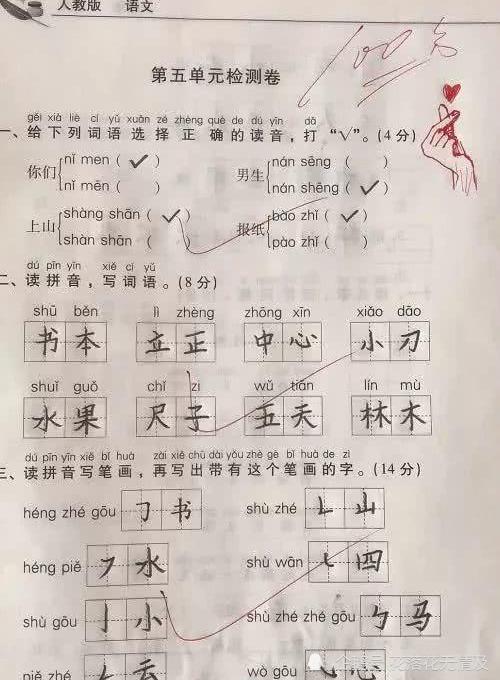 人教版 语文
100分
第五单元检测卷
gěi xià liè cí yǔ xuǎn zé zhèng què de dú yīn dǎ
一、给下列词语选择正确的读音,打“√”。(4分)
你们 nǐ men (✓) 男生 nán sēng ( )
nǐ mēn ( ) nán shēng (✓)
上山 shàng shān (✓) 报纸 bào zhǐ (✓)
shàn shān ( ) pào zhǐ ( )
dú pīn yīn xiě cí yǔ
二、读拼音,写词语。(8分)
shū běn lì zhèng zhōng xīn xiǎo dāo
书本 立正 中心 小刁
shuǐ guǒ chǐ zi wǔ tiān lín mù
水果 尺子 五天 林木
dú pīn yīn xiě bǐ huà zài xiě chū dài yǒu zhè gè bǐ huà de zì
三、读拼音写笔画,再写出带有这个笔画的字。(14分)
héng zhé gōu ㇆ 书 shù zhé ㇗ 山
héng piě ㇇ 水 shù wān ㇄ 四
shù gōu 亅 小 shù zhé zhé gōu ㇉ 马
piě zhé ㇜ 云 wò gōu ㇃ 心